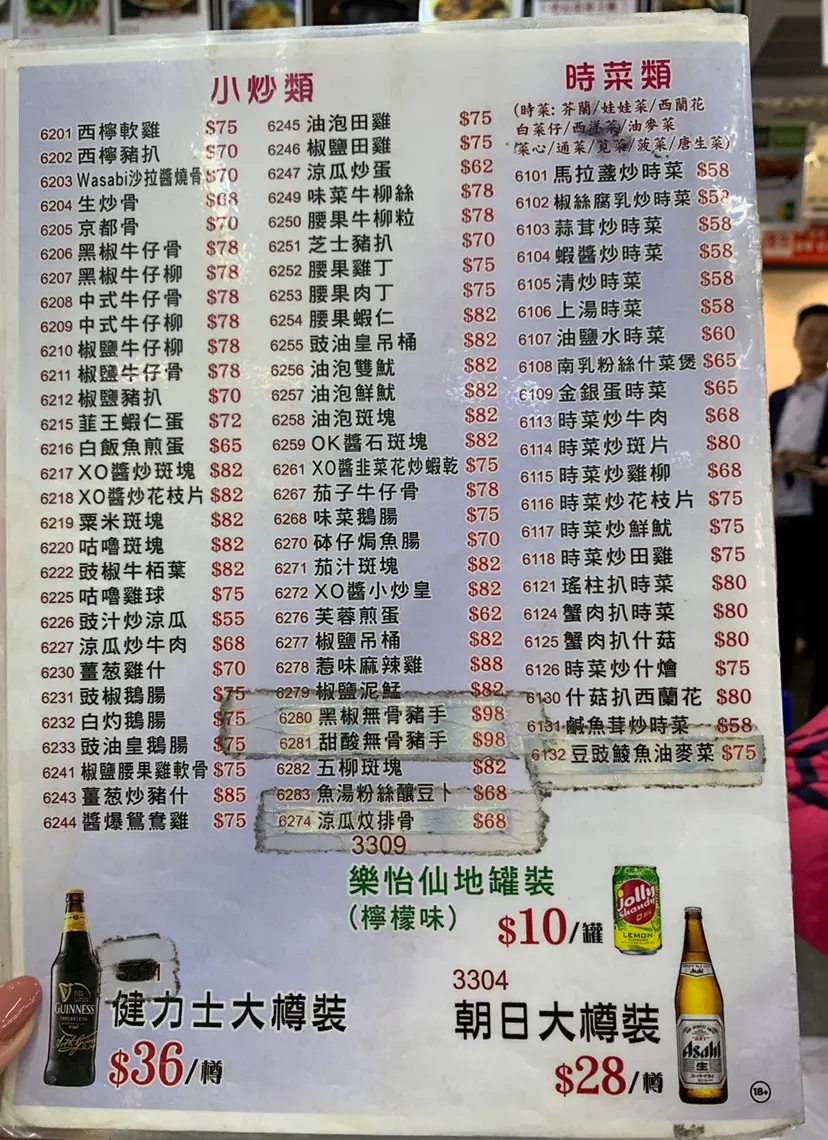 小炒類
6201 西檸軟雞 $75
6202 西檸豬扒 $70
6203 Wasabi沙拉醬燒骨 $70
6204 生炒骨 $68
6205 京都骨 $70
6206 黑椒牛仔骨 $78
6207 黑椒牛仔柳 $78
6208 中式牛仔骨 $78
6209 中式牛仔柳 $78
6210 椒鹽牛仔柳 $78
6211 椒鹽牛仔骨 $78
6212 椒鹽豬扒 $70
6215 韮王蝦仁蛋 $72
6216 白飯魚煎蛋 $65
6217 XO醬炒斑塊 $82
6218 XO醬炒花枝片 $82
6219 粟米斑塊 $82
6220 咕嚕斑塊 $82
6222 豉椒牛栢葉 $82
6225 咕嚕雞球 $75
6226 豉汁炒涼瓜 $55
6227 涼瓜炒牛肉 $68
6230 薑葱雞什 $70
6231 豉椒鵝腸 $75
6232 白灼鵝腸 $75
6233 豉油皇鵝腸 $75
6241 椒鹽腰果雞軟骨 $75
6243 薑葱炒豬什 $85
6244 醬爆鴛鴦雞 $75
6245 油泡田雞 $75
6246 椒鹽田雞 $75
6247 涼瓜炒蛋 $62
6249 味菜牛柳絲 $78
6250 腰果牛柳粒 $78
6251 芝士豬扒 $70
6252 腰果雞丁 $75
6253 腰果肉丁 $75
6254 腰果蝦仁 $82
6255 豉油皇吊桶 $82
6256 油泡雙魷 $82
6257 油泡鮮魷 $82
6258 油泡斑塊 $82
6259 OK醬石斑塊 $82
6261 XO醬韭菜花炒蝦乾 $75
6267 茄子牛仔骨 $78
6268 味菜鵝腸 $75
6270 砵仔焗魚腸 $70
6271 茄汁斑塊 $82
6272 XO醬小炒皇 $82
6276 芙蓉煎蛋 $62
6277 椒鹽吊桶 $82
6278 惹味麻辣雞 $88
6279 椒鹽泥鯭 $82
6280 黑椒無骨豬手 $98
6281 甜酸無骨豬手 $98
6282 五柳斑塊 $82
6283 魚湯粉絲釀豆卜 $68
6274 涼瓜炆排骨 $68
時菜類
(時菜: 芥蘭/娃娃菜/西蘭花
白菜仔/西洋菜/油麥菜
菜心/通菜/莧菜/菠菜/唐生菜)
6101 馬拉盞炒時菜 $58
6102 椒絲腐乳炒時菜 $58
6103 蒜茸炒時菜 $58
6104 蝦醬炒時菜 $58
6105 清炒時菜 $58
6106 上湯時菜 $58
6107 油鹽水時菜 $60
6108 南乳粉絲什菜煲 $65
6109 金銀蛋時菜 $65
6113 時菜炒牛肉 $68
6114 時菜炒斑片 $80
6115 時菜炒雞柳 $68
6116 時菜炒花枝片 $75
6117 時菜炒鮮魷 $75
6118 時菜炒田雞 $75
6121 瑤柱扒時菜 $80
6124 蟹肉扒時菜 $80
6125 蟹肉扒什菇 $80
6126 時菜炒什燴 $75
6130 什菇扒西蘭花 $80
6131 鹹魚茸炒時菜 $58
6132 豆豉鯪魚油麥菜 $75
3309
樂怡仙地罐裝
(檸檬味)
$10/罐
Jolly
Shandy
LEMON
GUINNESS
健力士大樽裝
$36/樽
3304
朝日大樽裝
$28/樽
Asahi
生
18+